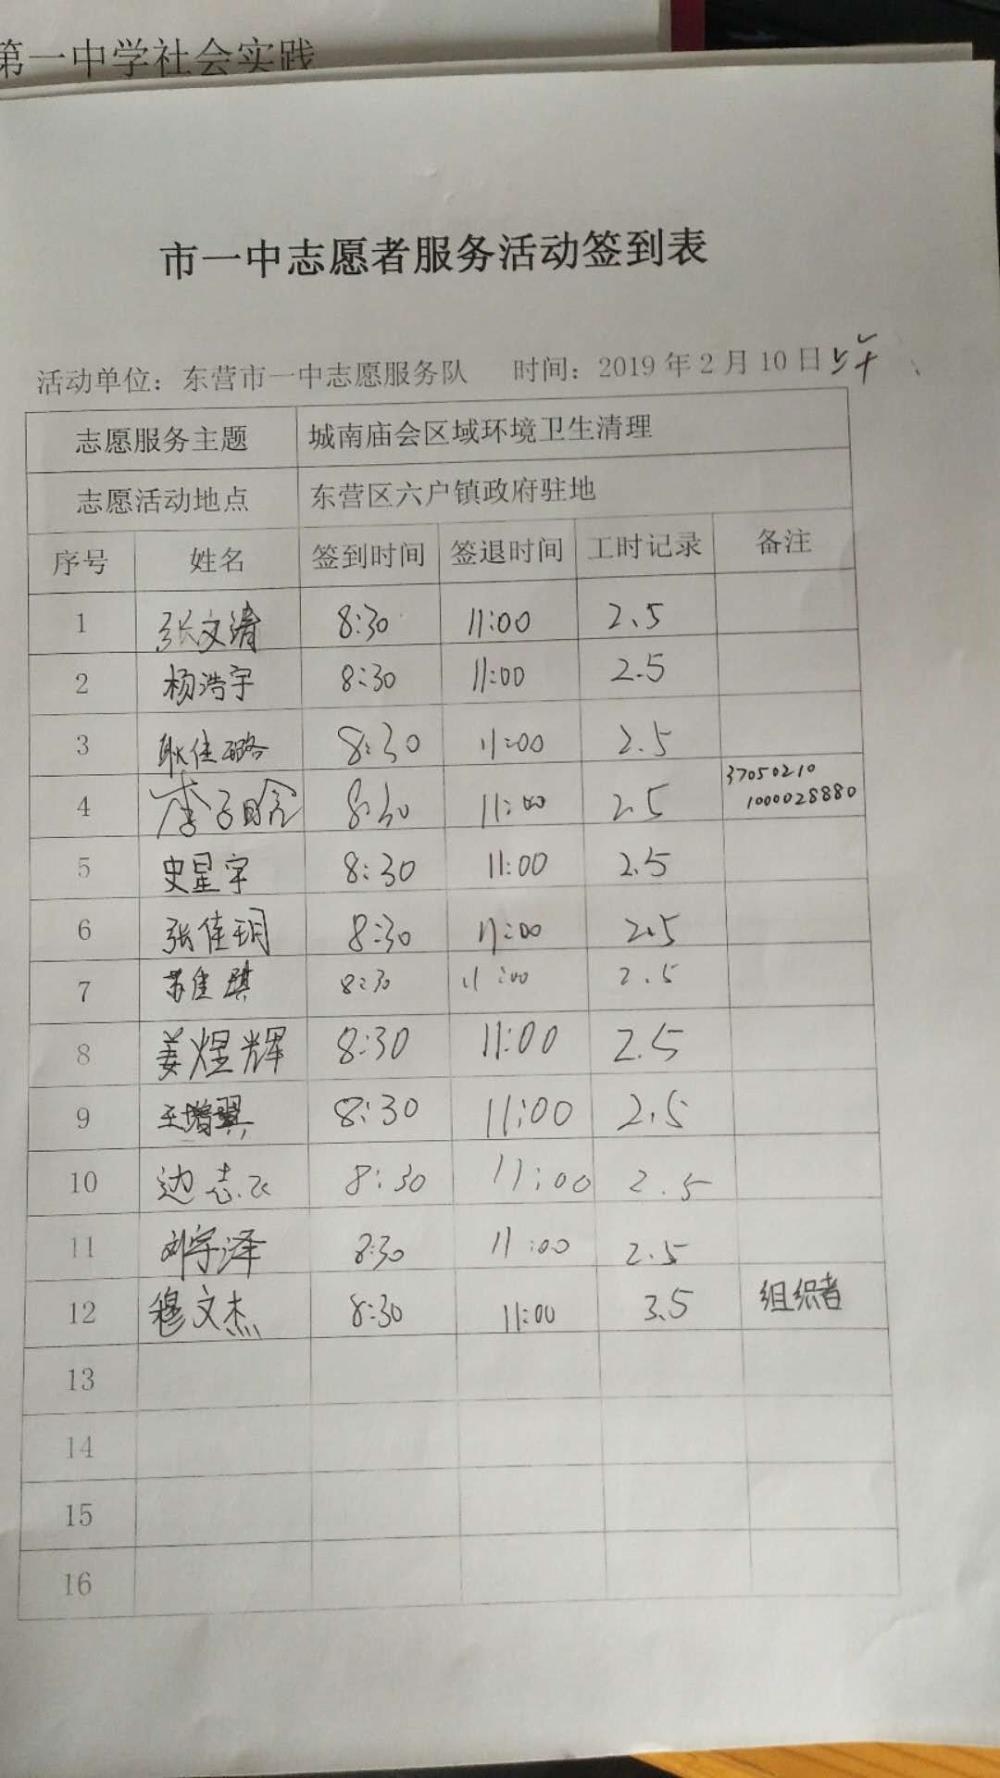 第一中学社会实践
市一中志愿者服务活动签到表
活动单位：东营市一中志愿服务队 时间：2019年2月10日上午
志愿服务主题 城南庙会区域环境卫生清理
志愿活动地点 东营区六户镇政府驻地
序号 姓名 签到时间 签退时间 工时记录 备注
1 张文涛 8:30 11:00 2.5
2 杨浩宇 8:30 11:00 2.5
3 耿佳璐 8:30 11:00 2.5
4 李子晗 8:30 11:00 2.5 37050210
1000028880
5 史星宇 8:30 11:00 2.5
6 张佳玥 8:30 11:00 2.5
7 苏佳琪 8:30 11:00 2.5
8 姜煜辉 8:30 11:00 2.5
9 王增翼 8:30 11:00 2.5
10 边志 8:30 11:00 2.5
11 刘宇泽 8:30 11:00 2.5
12 穆文杰 8:30 11:00 3.5 组织者
13
14
15
16